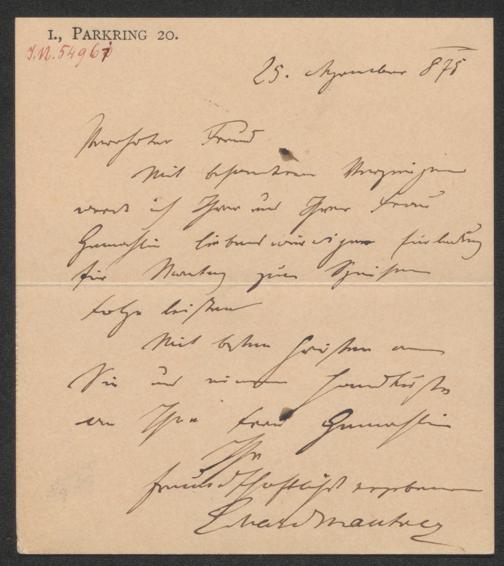 I., PARKRING 20.
I.N. 54961
25. November 875
Verehrter Freund
Mit besonderem Vergnügen
werde ich Ihrer und Ihrer Frau
Gemahlin liebenswürdigen Einladung
für Montag zum Speisen
Folge leisten
Mit besten Grüßen an
Sie und einem Handkuss
an Ihre Frau Gemahlin
Ihr
freundschaftlichst ergebener